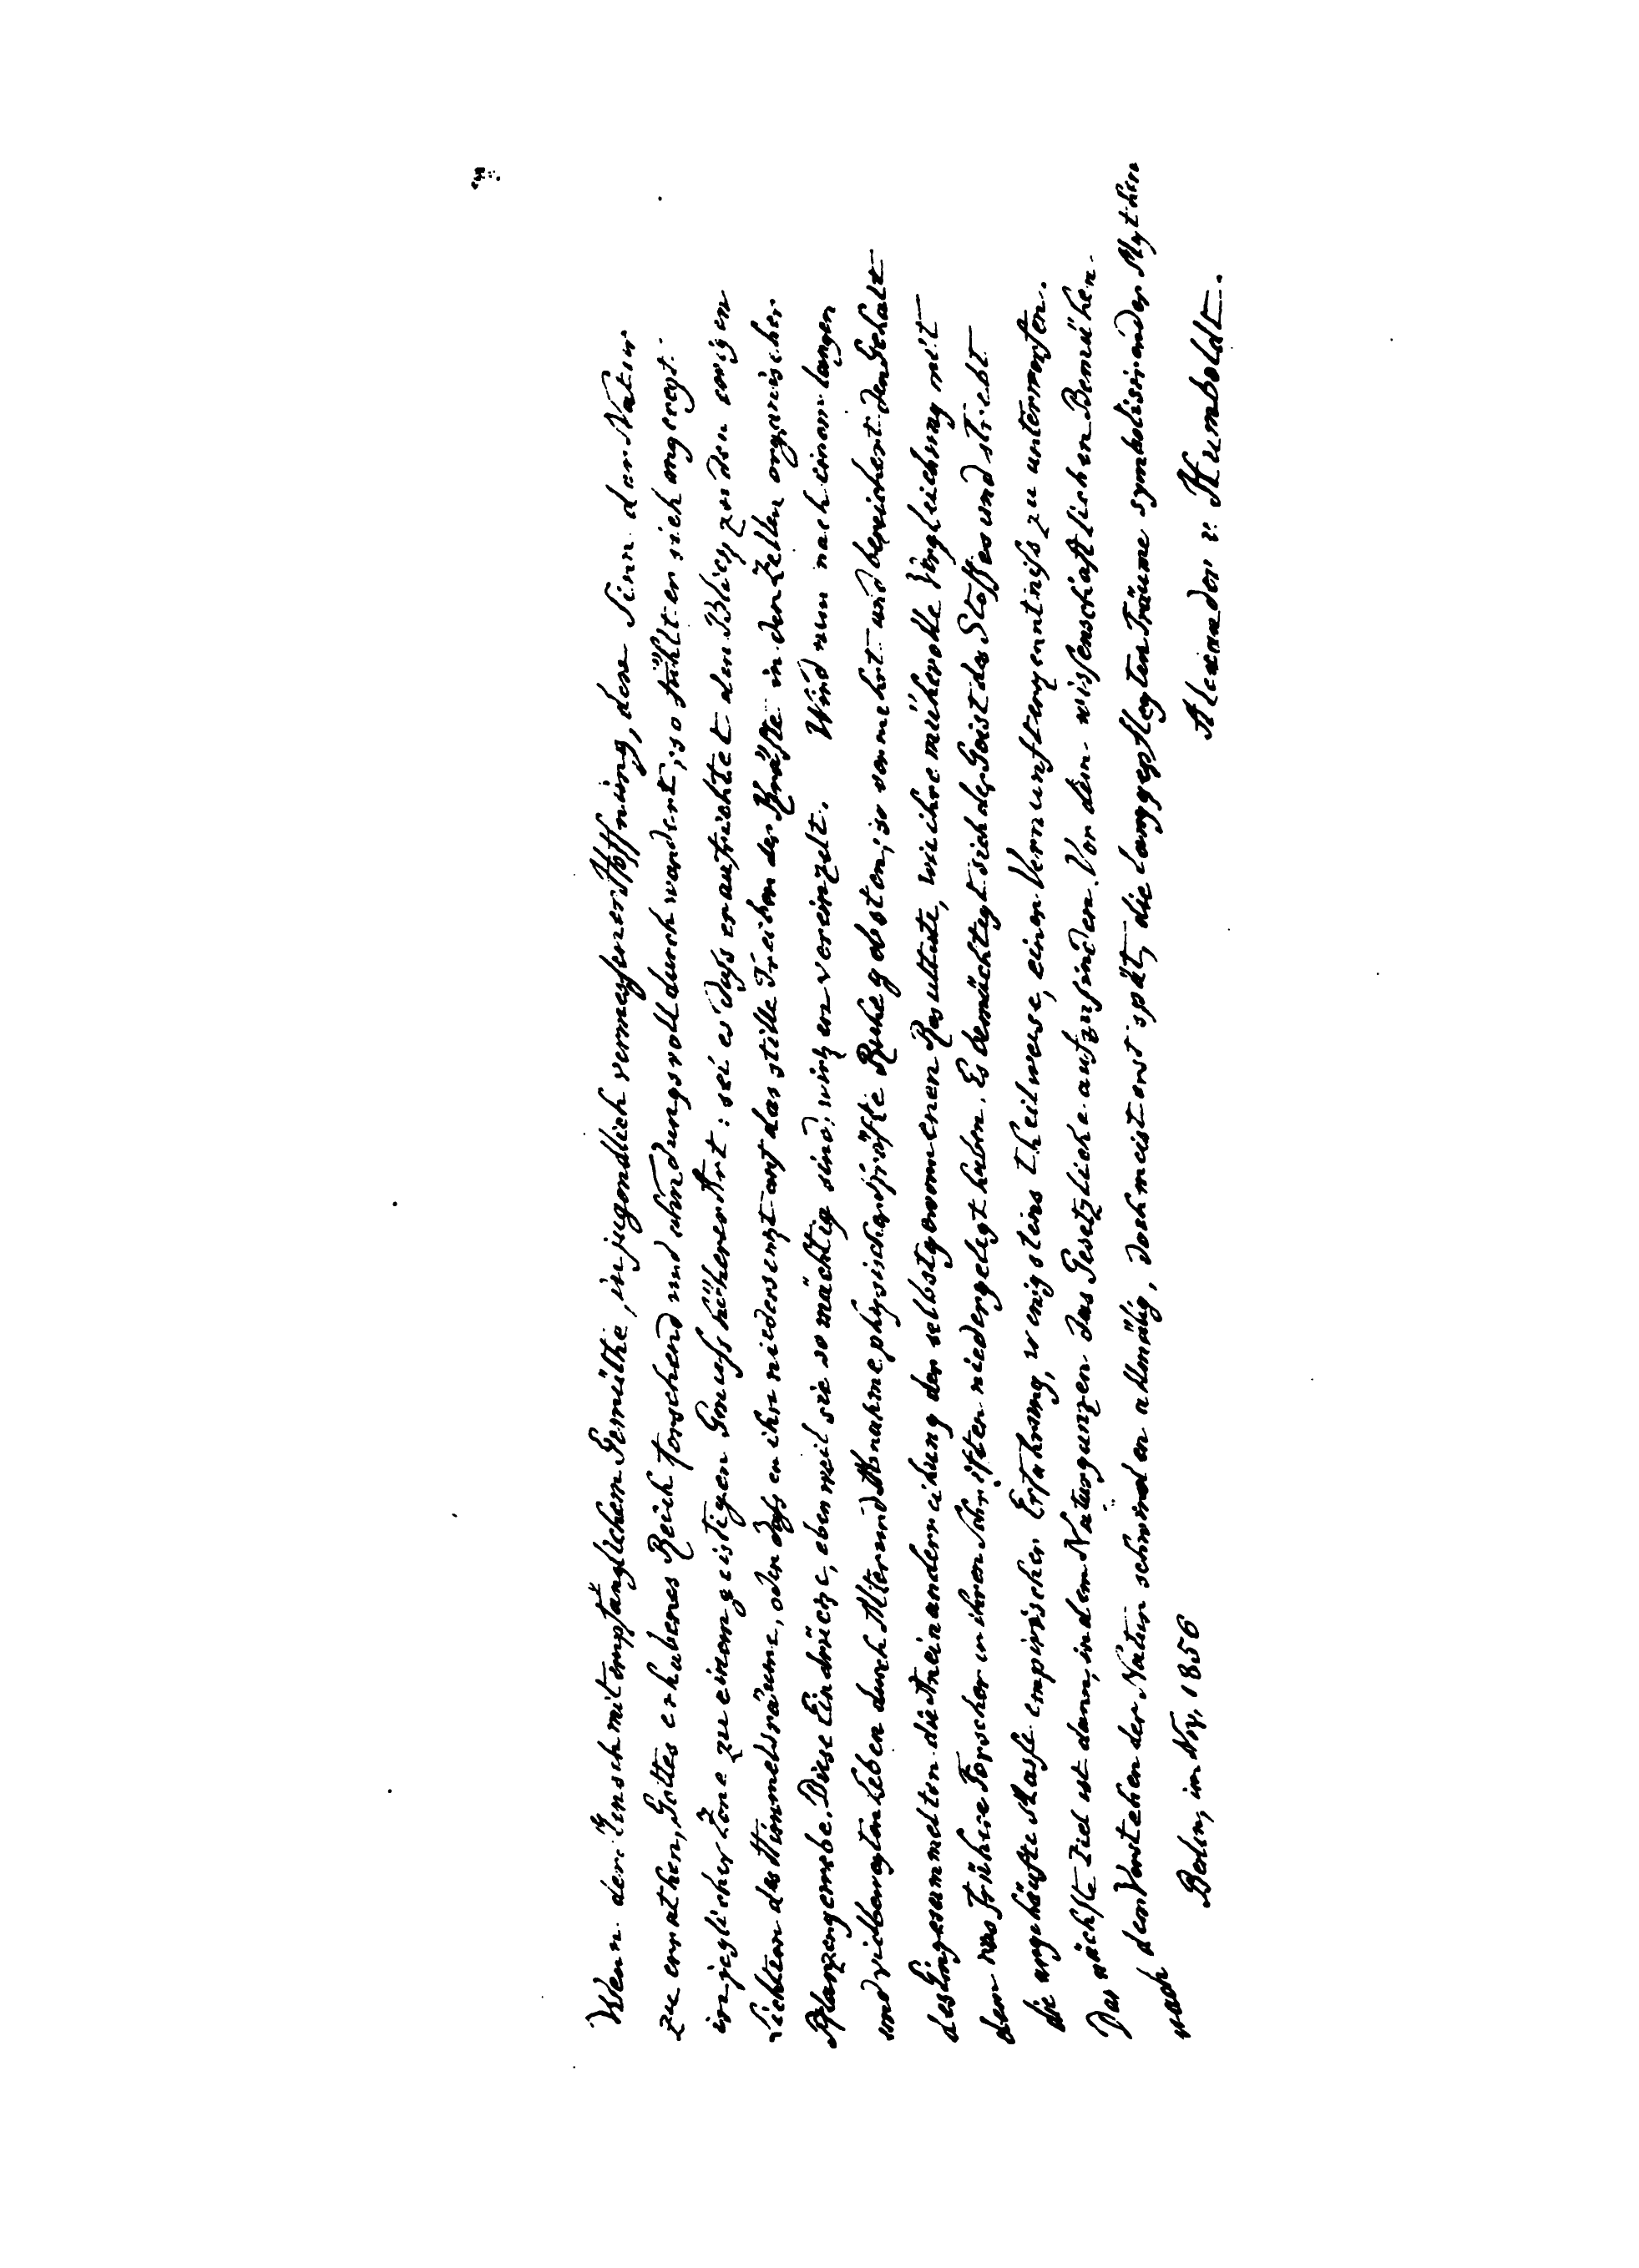 Wenn der Mensch mit empfänglichem Gemüthe, in jugendlich vermessener Hoffnung, den Sinn der Natur
zu errathen, Gottes erhabenes Reich forschend und ahndungsvoll durchwandert; so fühlt er sich angeregt
in jeglicher Zone zu einem geistigen Genuss höherer Art: sei es dass er aufrichtet den Blick zu den ewigen
Lichtern der Himmelsräume, oder dass er ihn niedersenkt auf das stille Treiben der Kräfte in den Zellen organischer
Pflanzengewebe. Diese Eindrücke, eben weil sie so mächtig sind, wirken vereinzelt. Wird nun nach einem langen
und vielbewegten Leben durch Alter und Abnahme physischer Kräfte Ruhe geboten; so vermehrt und bereichert den Gehalt
des Eingesammelten die Aneinanderreihung der selbstgewonnenen Resultate, wie ihre mühevolle Vergleichung mit
dem was frühere Forscher in ihren Schriften niedergelegt haben. Es bemächtigt sich der Geist des Stoffes und strebt
die angehäufte Masse empirischer Erfahrung, wenigstens theilweise, einer Vernunfterkenntniß zu unterwerfen.
Das nächste Ziel ist dann, in dem Naturganzen das Gesetzliche aufzufinden. Vor dem wissenschaftlichen Bemühen
nach dem Verstehen der Natur schwinden allmälig, doch meist erst spät, die langgepflegten Träume symbolisirender Mythen
Berlin, im Nov. 1856 Alexander v. Humboldt.